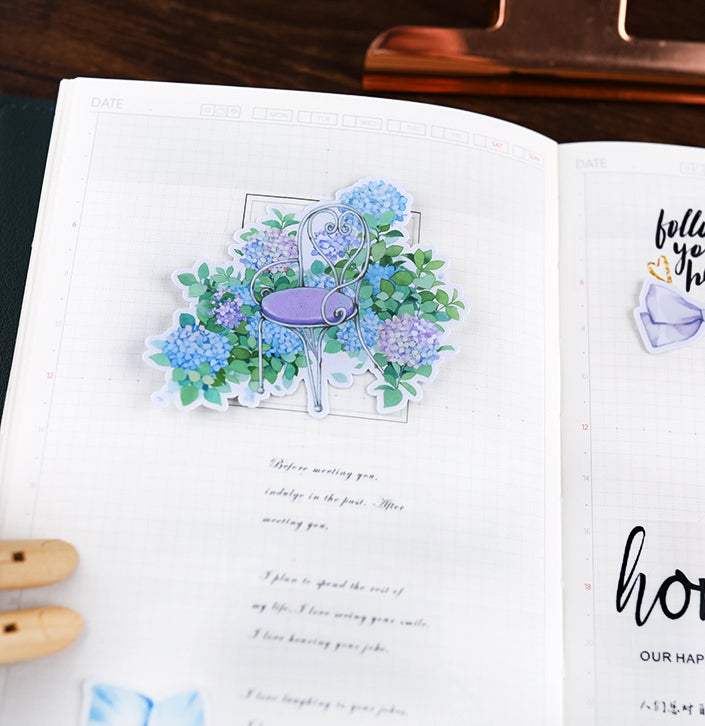 DATE
MON TUE WED THU FRI SAT SUN
6
12
Before meeting you,
indulge in the past. After
meeting you,
I plan to spend the rest of
my life. I love seeing your smile,
I love hearing your joke,
I love laughing to your jokes,
DATE
follow
you
12
14
16
18
20
hor
OUR HAP
人们总对